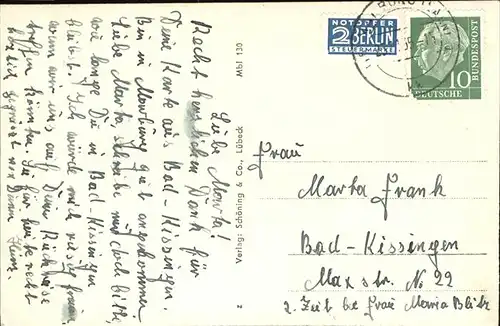 Liebe Marta!
Recht herzlichen Dank für
Deine Karte aus Bad-Kissingen.
Bin in Marburg gut angekommen.
Liebe Marta, schreibe mir doch bitte,
wie lange Du in Bad-Kissingen
bleibst. Ich würde mich riesig freuen,
wenn wir uns auf Deiner Rückreise
treffen könnten. Sei für heute recht
herzlich gegrüßt von Deinem Heinz.
Mbl 130
Verlag: Schöning & Co., Lübeck
2
NOTOPFER
2 BERLIN
STEUERMARKE
DEUTSCHE
BUNDESPOST
10
Frau
Marta Frank
Bad-Kissingen
Max str. No 22
z. Zeit bei Frau Maria